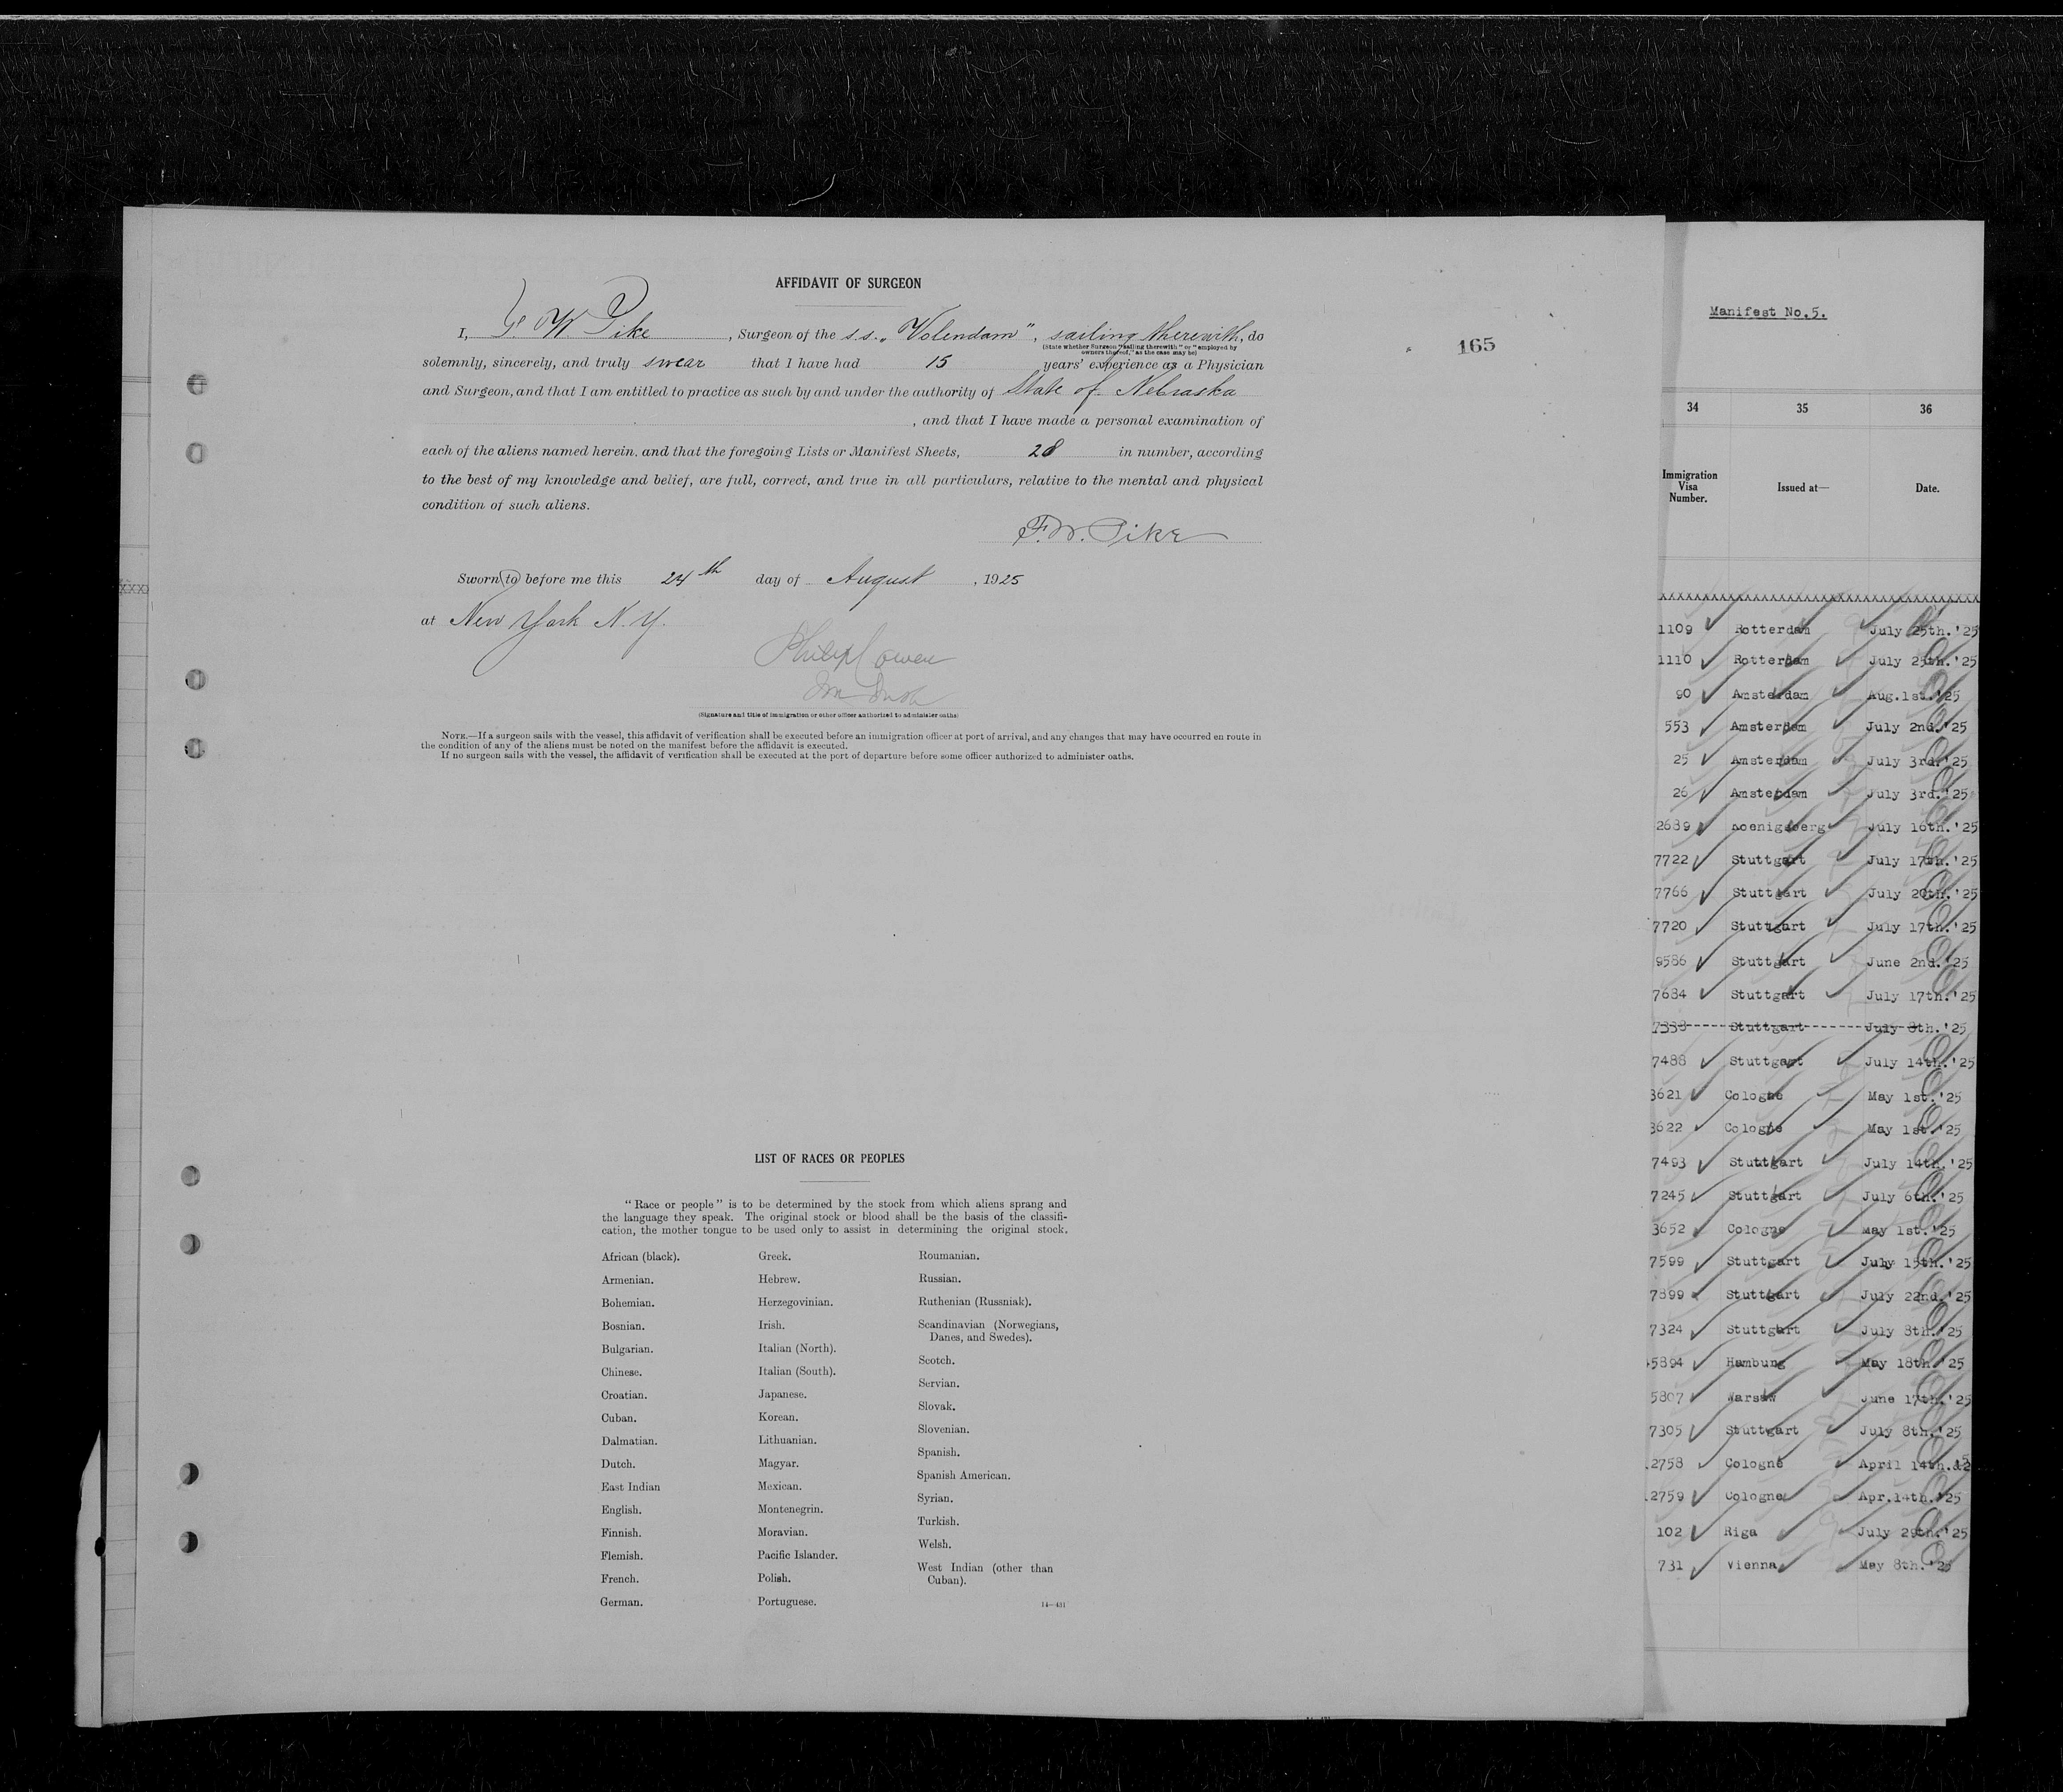 AFFIDAVIT OF SURGEON
I, F. W. Pike, Surgeon of the s.s. „Volendam", sailing therewith, do
(State whether Surgeon "sailing therewith" or "employed by
owners thereof," as the case may be)
solemnly, sincerely, and truly swear that I have had 15 years' experience as a Physician
and Surgeon, and that I am entitled to practice as such by and under the authority of State of Nebraska
, and that I have made a personal examination of
each of the aliens named herein, and that the foregoing Lists or Manifest Sheets, 28 in number, according
to the best of my knowledge and belief, are full, correct, and true in all particulars, relative to the mental and physical
condition of such aliens.
F. W. Pike
Sworn to before me this 24th day of August, 1925
at New York N.Y.
Philip Cowen
(Signature and title of immigration or other officer authorized to administer oaths)
NOTE.—If a surgeon sails with the vessel, this affidavit of verification shall be executed before an immigration officer at port of arrival, and any changes that may have occurred en route in
the condition of any of the aliens must be noted on the manifest before the affidavit is executed.
If no surgeon sails with the vessel, the affidavit of verification shall be executed at the port of departure before some officer authorized to administer oaths.
165
LIST OF RACES OR PEOPLES
"Race or people" is to be determined by the stock from which aliens sprang and
the language they speak. The original stock or blood shall be the basis of the classifi-
cation, the mother tongue to be used only to assist in determining the original stock.
African (black).
Armenian.
Bohemian.
Bosnian.
Bulgarian.
Chinese.
Croatian.
Cuban.
Dalmatian.
Dutch.
East Indian
English.
Finnish.
Flemish.
French.
German.
Greek.
Hebrew.
Herzegovinian.
Irish.
Italian (North).
Italian (South).
Japanese.
Korean.
Lithuanian.
Magyar.
Mexican.
Montenegrin.
Moravian.
Pacific Islander.
Polish.
Portuguese.
Roumanian.
Russian.
Ruthenian (Russniak).
Scandinavian (Norwegians,
Danes, and Swedes).
Scotch.
Servian.
Slovak.
Slovenian.
Spanish.
Spanish American.
Syrian.
Turkish.
Welsh.
West Indian (other than
Cuban).
14—431
Manifest No.5.
34 35 36
Immigration
Visa
Number.
Issued at—
Date.
1109 Rotterdam July 25th.'25
1110 Rotterdam July 25th.'25
90 Amsterdam Aug.1st.'25
553 Amsterdam July 2nd.'25
25 Amsterdam July 3rd.'25
26 Amsterdam July 3rd.'25
2689 Koenigsberg July 16th.'25
7722 Stuttgart July 17th.'25
7766 Stuttgart July 20th.'25
7720 Stuttgart July 17th.'25
9586 Stuttgart June 2nd.'25
7684 Stuttgart July 17th.'25
7338 Stuttgart July 8th.'25
7488 Stuttgart July 14th.'25
3621 Cologne May 1st.'25
3622 Cologne May 1st.'25
7493 Stuttgart July 14th.'25
7245 Stuttgart July 6th.'25
3652 Cologne May 1st.'25
7599 Stuttgart July 15th.'25
7899 Stuttgart July 22nd.'25
7324 Stuttgart July 8th.'25
5894 Hamburg May 18th.'25
5807 Warsaw June 17th.'25
7305 Stuttgart July 8th.'25
2758 Cologne April 14th.
2759 Cologne Apr.14th.'25
102 Riga July 29th.'25
731 Vienna May 8th.'25